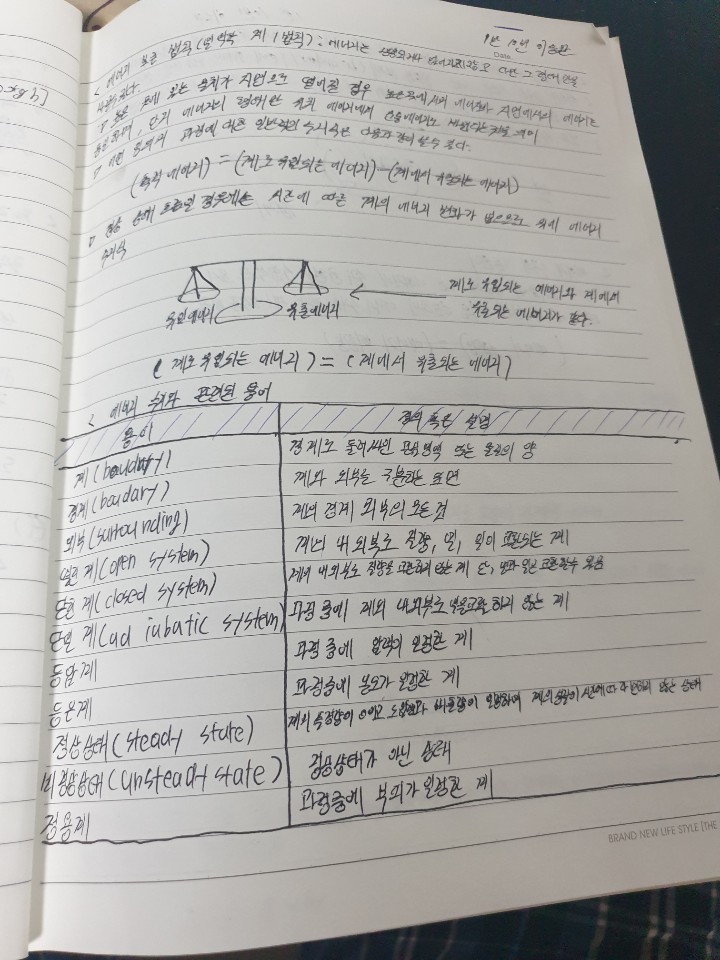 Date
< 에너지 보존 법칙(열역학 제 1법칙) : 에너지는
높은 곳에 있는 물체가 지면으로 떨어질 경우 높은곳에서의 에너지와 지면에서의 에너지는
동일하며, 단지 에너지의 형태만 위치 에너지에서 운동에너지로
과정에 대한 일반적인 수지식은 다음과 같이 쓸수 있다.
(축적 에너지) = (계로 유입되는 에너지)-(계에서 유출되는 에너지)
정상 상태 조건인 경우에는 시간에 따른 계의 에너지 변화가 없으므로 위에 에너지
수지식
유입에너지 유출에너지
계로 유입되는 에너지와 계에서
유출되는 에너지가 같다.
( 계로 유입되는 에너지 ) = ( 계에서 유출되는 에너지 )
< 에너지 수지와 관련된 용어
용어 정의 혹은 설명
계 경계로 둘러싸인 또는 물질의 양
경계(boudary) 계와 외부를 구분하는 표면
외부(surrounding) 계의 경계 외부의 모든것
열린 계(open system) 계의 내 외부로 질량, 열, 일이 교환되는 계
닫힌 계(closed system) 계의 내 외부로 질량을 교환하지 않는 계 단, 열과 일은 교환할수 있음
단열 계(ad iabatic system) 과정 중에 계의 내외부로 열을교환 하지 않는 계
등압계 과정 중에 압력이 일정한 계
등온계 과정중에 온도가 일정한 계
정상상태(steady state) 계의 축적량이 0이고 유입량과 계의 성질이 시간에 따라 변하지 않는 상태
비정상상태(unsteady state) 정상상태가 아닌 상태
정용계 과정중에 부피가 일정한 계
BRAND NEW LIFE STYLE [THE